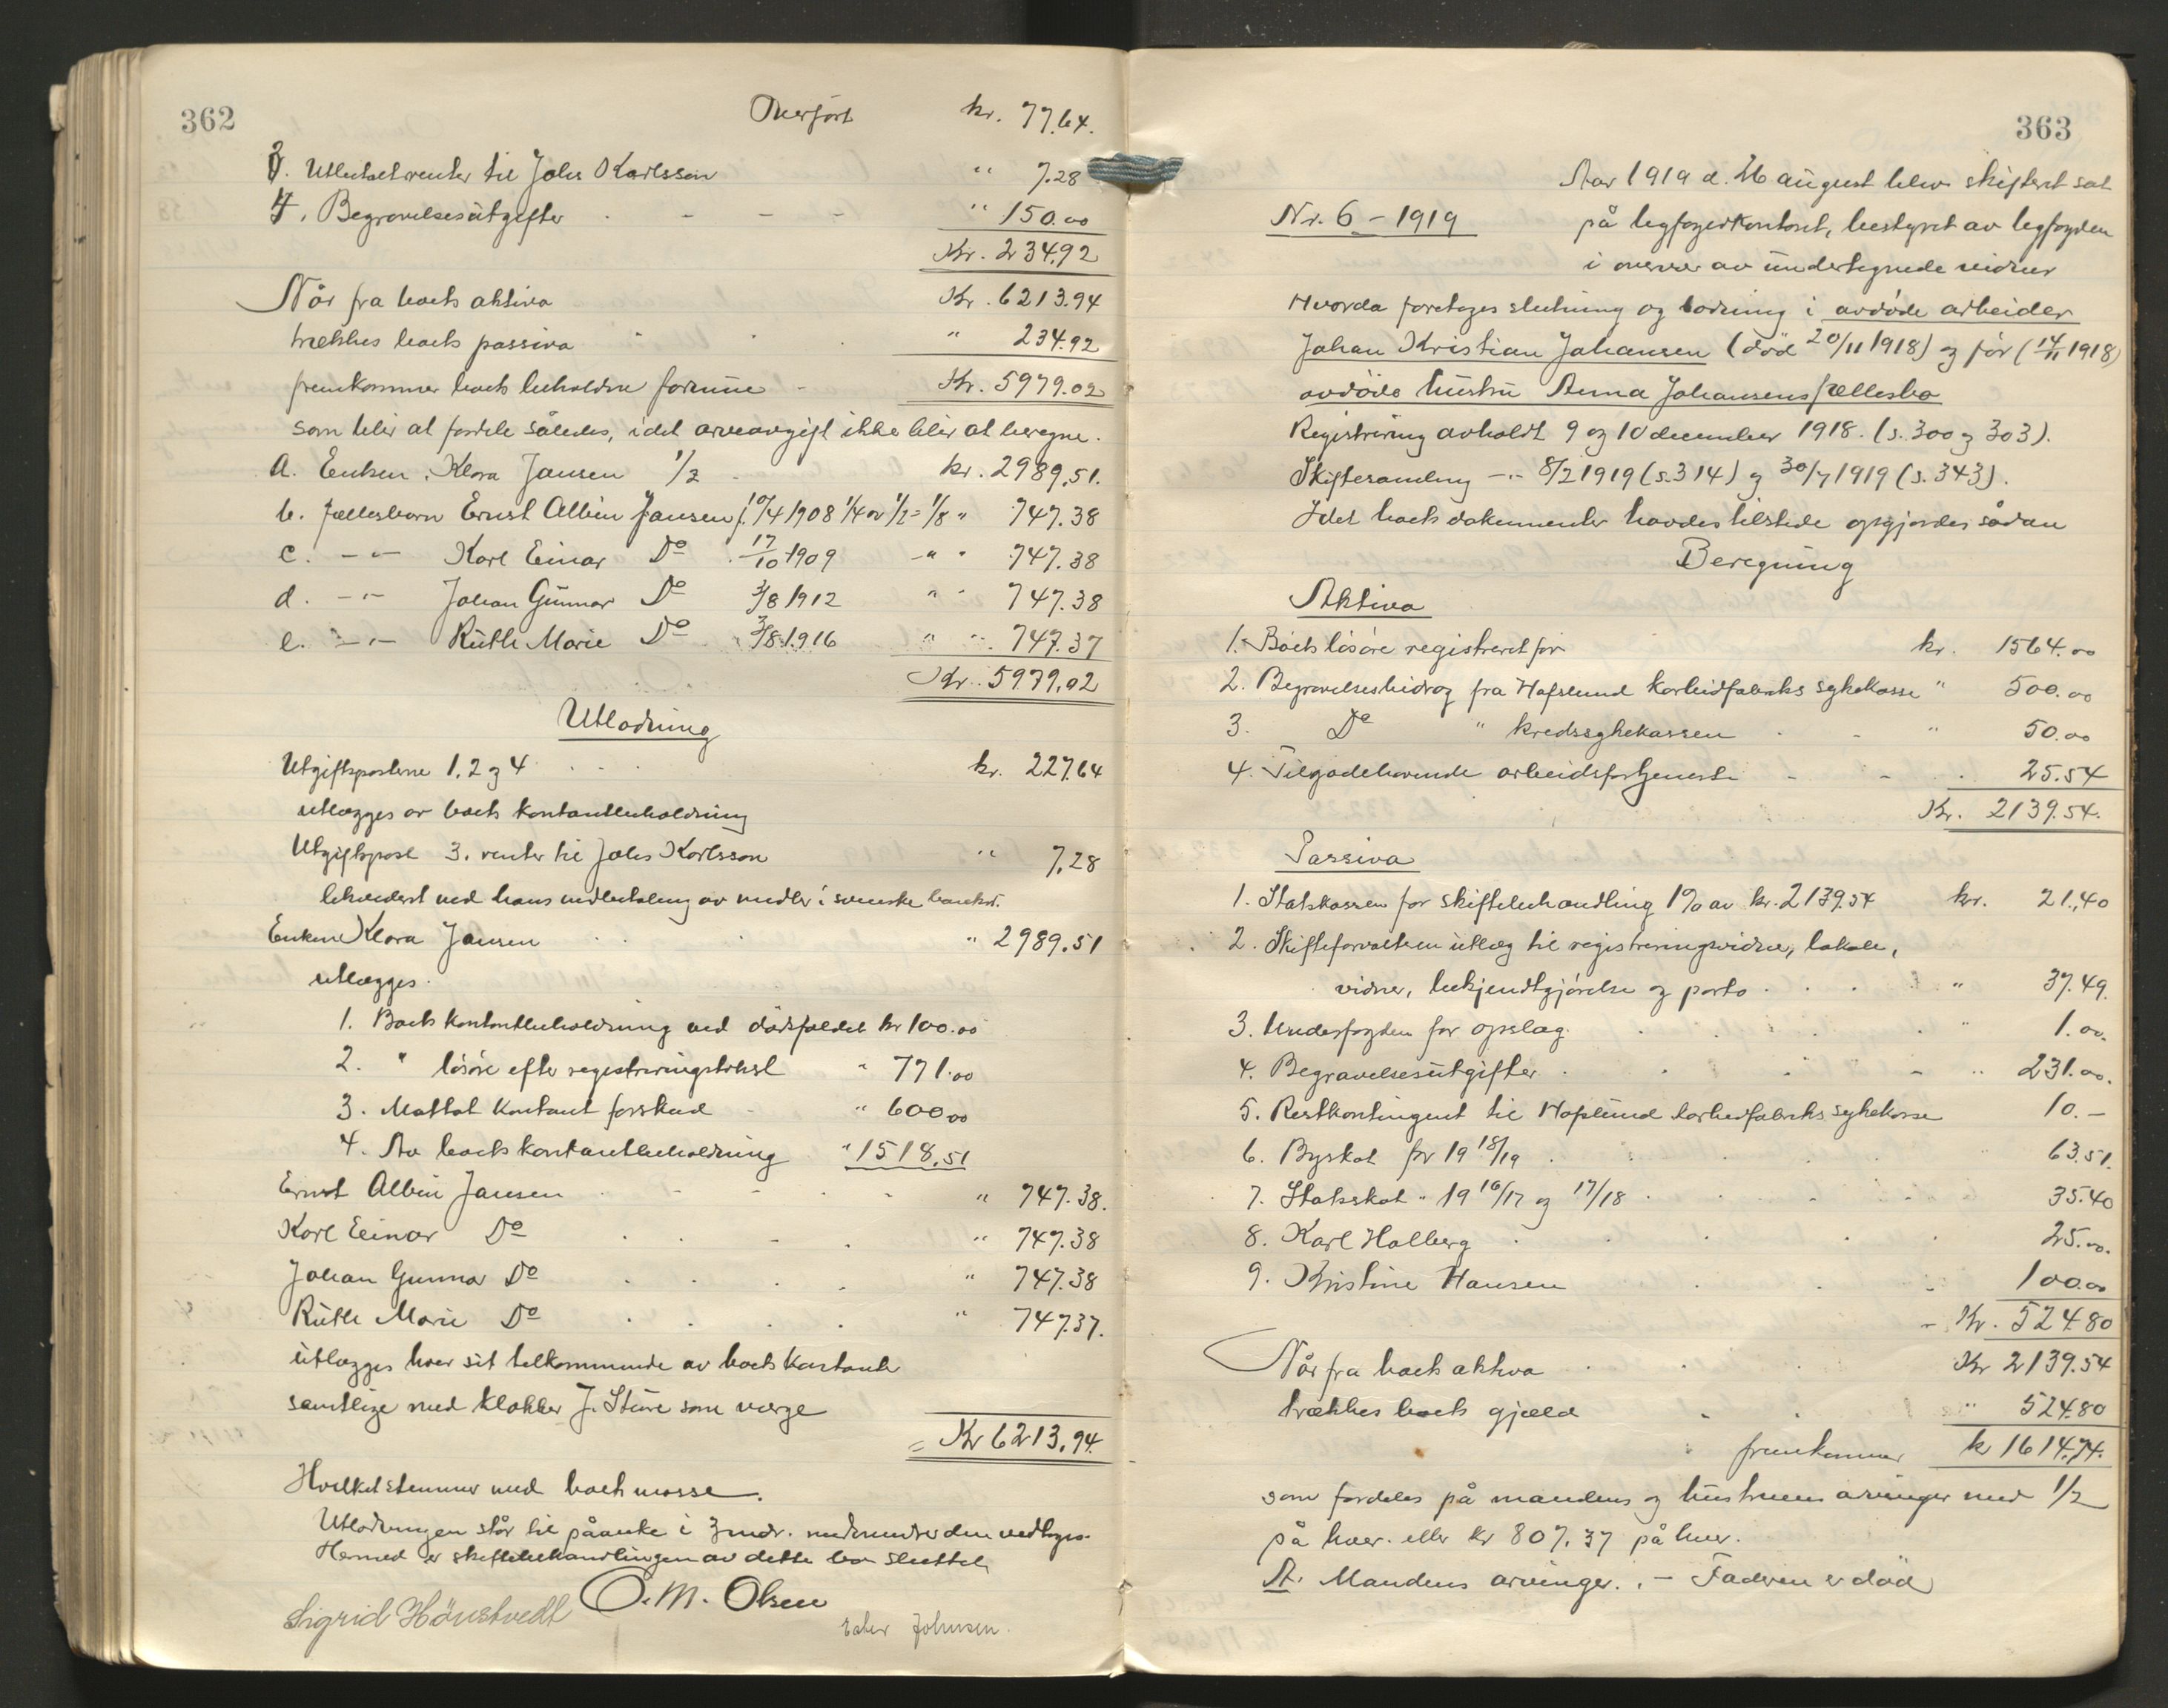 362
Overført kr. 77.64.
3. Utlutal renter til Johs Karlsson " 7.28
4. Begravelsesutgifter " 150.00
Kr. 234.92
Når fra boets aktiva Kr. 6213.94
trækkes boets passiva " 234.92
fremkommer boets beholdne formue Kr. 5979.02
som blir at fordele således, idet arveavgift ikke blir at beregne.
A. Enken Klara Jansen 1/2 kr. 2989.51.
b. fællesbarn Ernst Albin Jansen f. 10/4 1908 1/4 av 1/2 = 1/8 " 747.38
c. -"- Karl Einar Do 17/10 1909 -"- 747.38
d. -"- Johan Gunnar Do 3/8 1912 " " 747.38
e. -"- Ruth Marie Do 3/8 1916 " " 747.37
Kr. 5979.02
Utlodning
Utgiftsposterne 1, 2 og 4 kr. 227.64
utlægges av boets kontantbeholdning
Utgiftspost 3. renter til Johs Karlsson " 7.28
ved hans indbetaling av midler i svenske
Enken Klara Jansen " 2989.51
utlægges.
1. Boets kontantbeholdning ved dødsfaldet kr 100.00
2. " løsøre efter registreringstakst " 771.00
3. Mottat kontant forskud " 600.00
4. Av boets kontantbeholdning " 1518.51
Ernst Albin Jansen " 747.38.
Karl Einar Do " 747.38
Johan Gunnar Do " 747.38
Ruth Marie Do " 747.37.
utlægges hver sit tilkommende av boets kontante
samtlige med klokker J. Sture som værge
= Kr 6213.94.
Hvilket stemmer med boets masse.
Utlodningen står til påanke i 3 mdr.
Hermed er skiftebehandlingen av dette bo sluttet.
O. M. Olsen
Sigrid Hønstvedt
Ester Johnsen.
363
Aar 1919 d. 26 august blev skifteret sat
Nr. 6 - 1919 på byfogedkontoret, bestyret av byfogden
i overvær av undertegnede vidner
Hvorda foretoges slutning og lodning i avdøde arbeider
Johan Kristian Johansen (død 20/11 1918) og før (14/11 1918)
avdøde hustru Anna Johansens fællesbo
Registrering avholdt 9 og 10 december 1918. (s. 300 og 303).
Skiftesamling -"- 8/2 1919 (s. 314) og 30/7 1919 (s. 343).
Idet boets dokumenter havdes tilstede opgjordes sådan
Beregning
Aktiva
1. Boets løsøre registreret for kr. 1564.00
2. Begravelsesbidrag fra Hafslund karbidfabriks sykekasse " 500.00
3. Do " kredssykekassen " 50.00
4. Tilgodehavende arbeidsfortjeneste 25.54
Kr. 2139.54.
Passiva
1. Statskassen for skiftebehandling 1% av kr. 2139.54 kr. 21.40
2. Skifteforvalteren utlæg til registreringsvidner, lokale,
vidner, bekjendtgjørelse og porto " 37.49.
3. Underfogden for opslag " 1.00.
4. Begravelsesutgifter " 231.00.
5. Restkontingent til Hafslund karbidfabriks sykekasse 10.-
6. Byskat for 19 18/19 63.51.
7. Statsskat " 19 16/17 og 17/18 35.40
8. Karl Halberg 25.00.
9. Kristine Hansen 100.00
Kr. 524.80
Når fra boets aktiva Kr 2139.54
trækkes boets gjæld " 524.80
fremkommer kr 1614.74.
som fordeles på mandens og hustruens arvinger med 1/2
på hver. eller kr 807.37 på hver.
A. Mandens arvinger. - Faderen er død